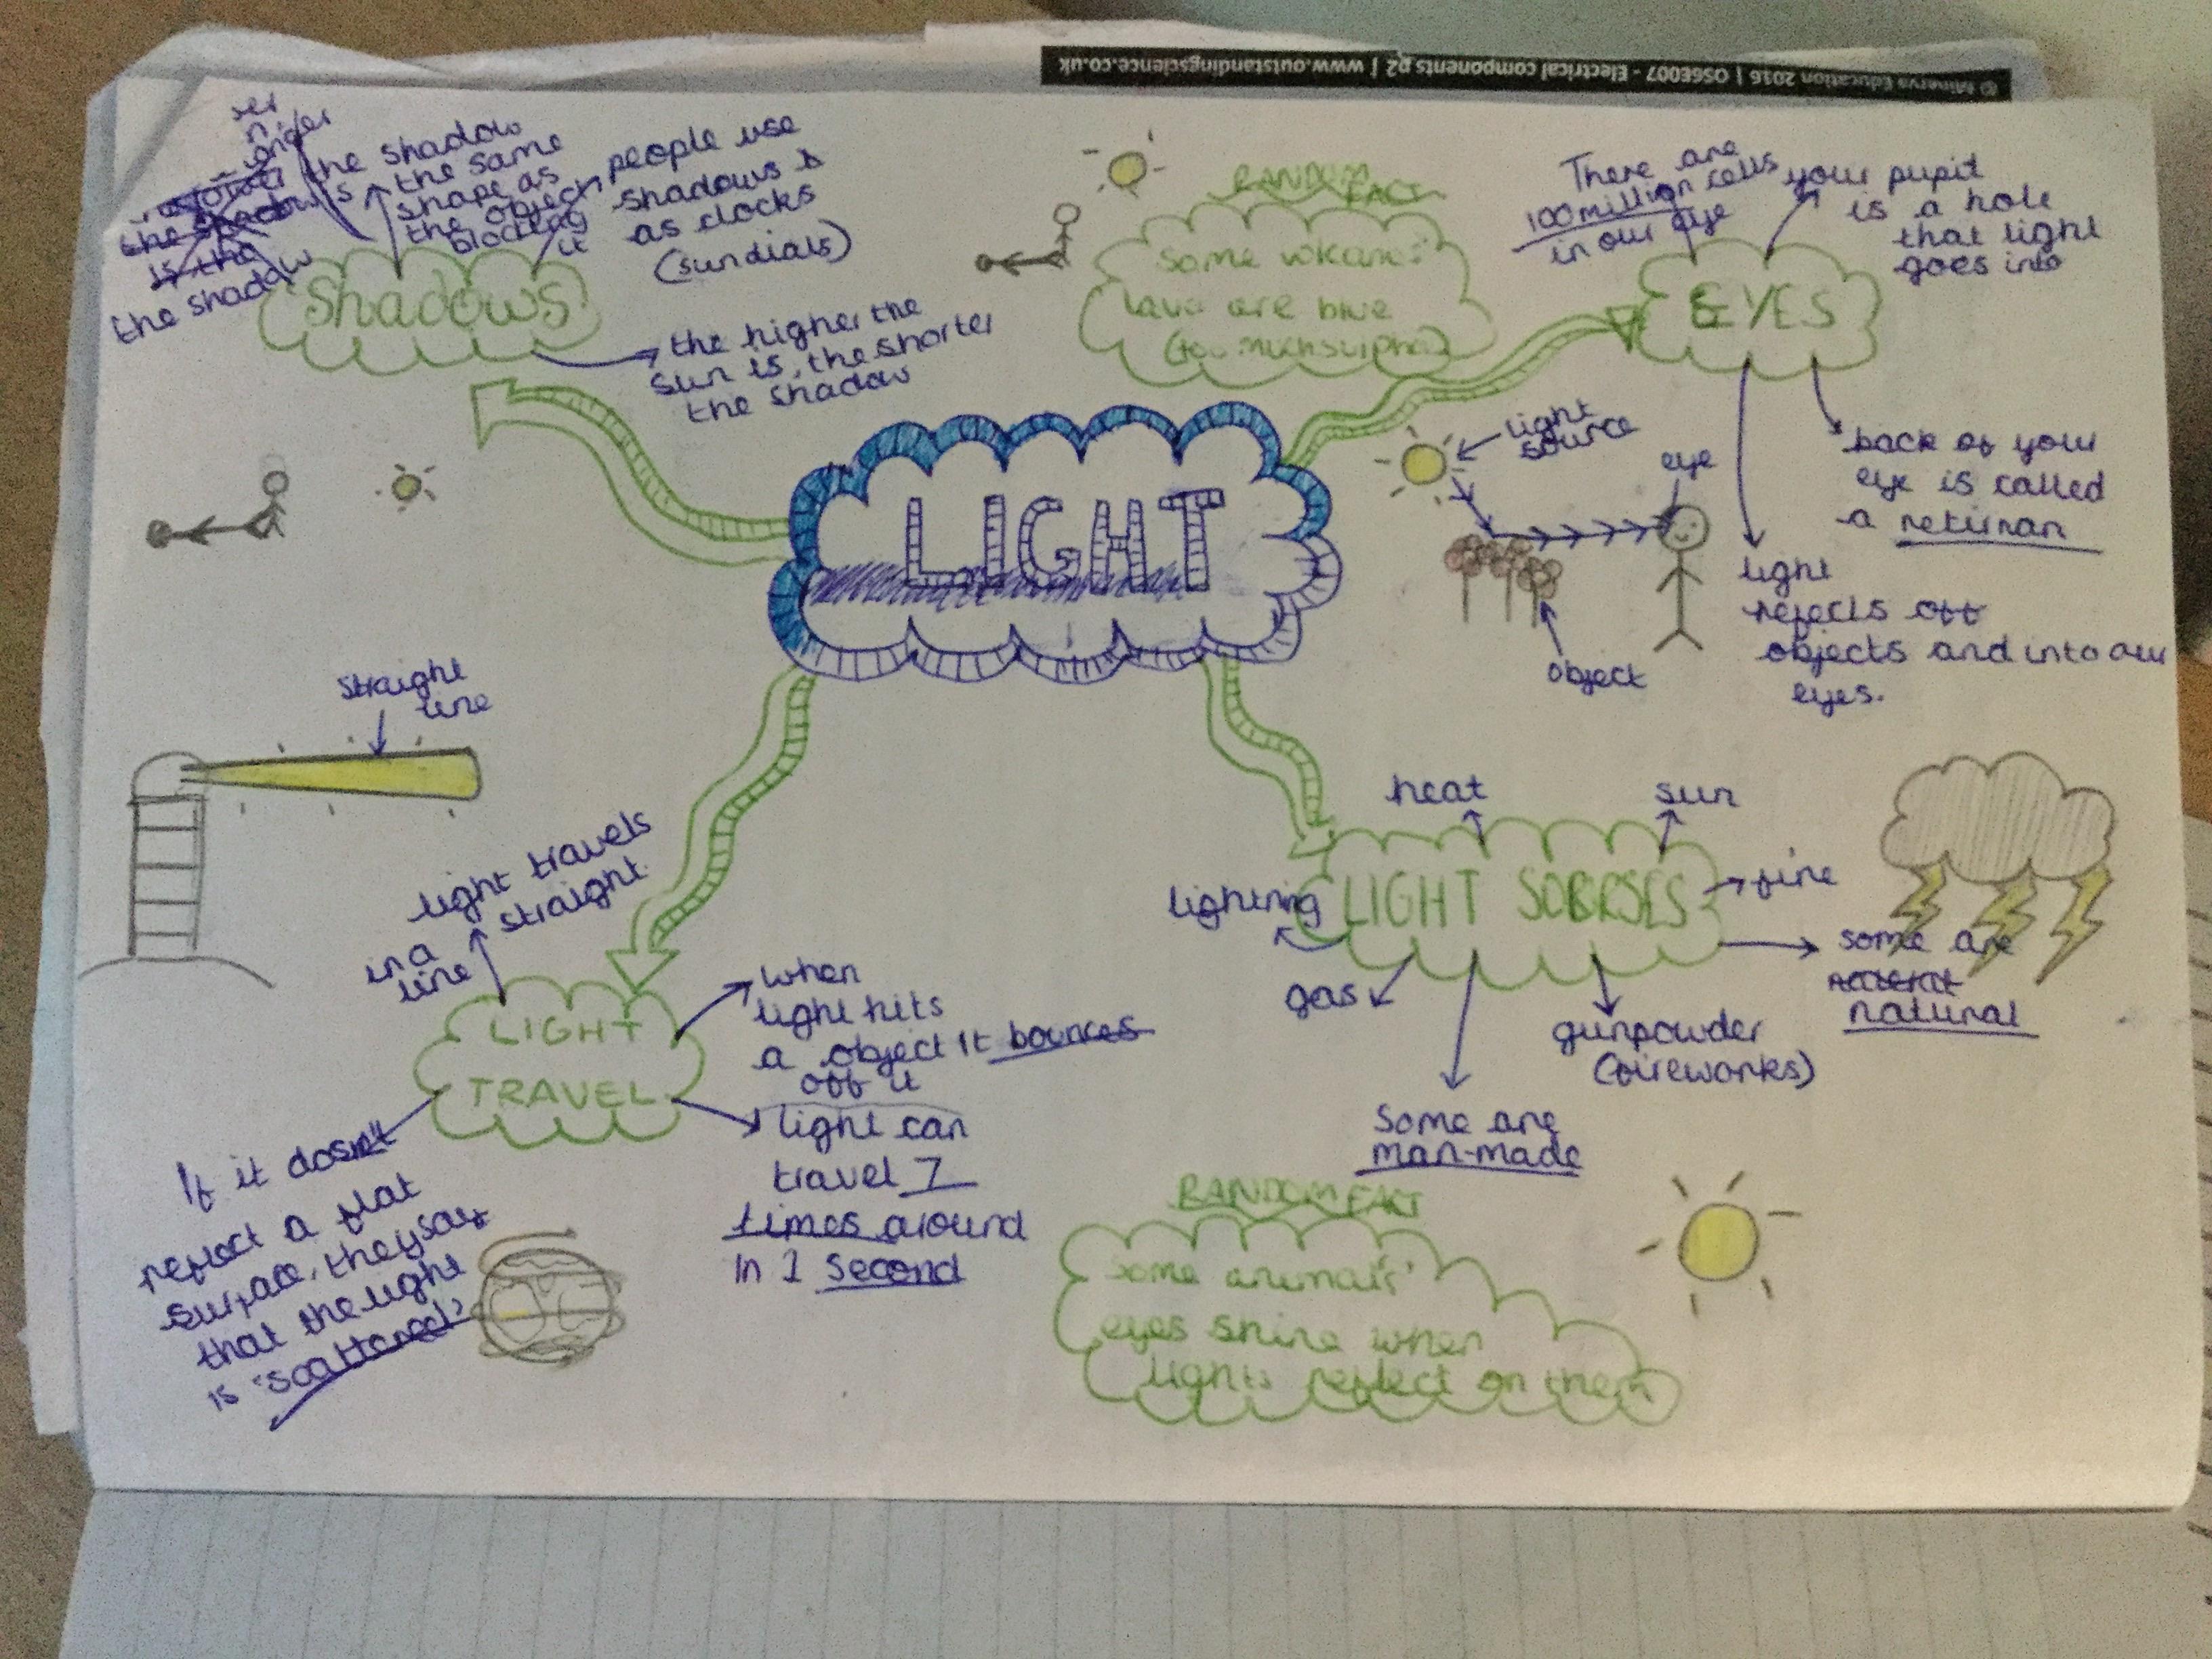 © Minerva Education 2016 | OS6E007 - Electrical components p2 | www.outstandingscience.co.uk
the shadow
is the same
shape as
the object
blocking
it
the shadow
is the
the shadow
people use
shadows
as clocks
(sundials)
Shadows
the higher the
sun is, the shorter
the shadow
RANDOM
FACT
Some volcanos'
lava are blue
(too much sulphar)
There are
100 million cells
in our eye
your pupil
is a hole
that light
goes into
EYES
back of your
eye is called
a retinan
light
reflects off
objects and into our
eyes.
light
source
eye
object
LIGHT
straight
line
light travels
in a straight
line
LIGHT
TRAVEL
when
light hits
a object it bounces
off it
light can
travel 7
times around
in 1 second
If it dosn't
reflect a flat
surface, they say
that the light
is 'scattered'
heat
sun
lightning
LIGHT SOURSES
fire
some are
natural
gas
gunpowder
(fireworks)
Some are
man-made
RANDOM FACT
Some animals'
eyes shine when
lights reflect on them